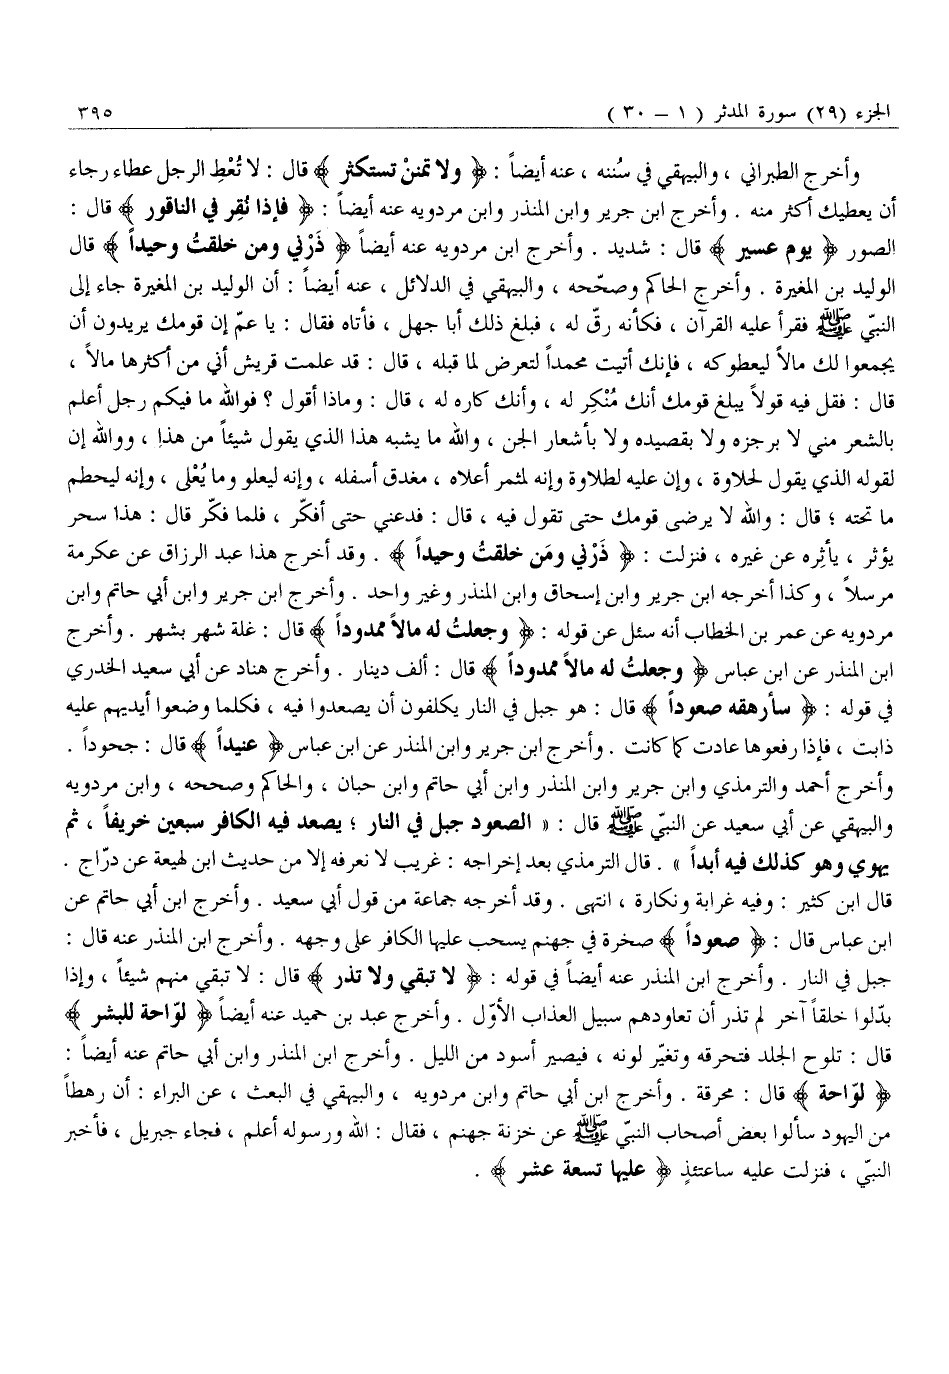 الجزء (٢٩) سورة المدثر ( ١ – ٣٠ ) ٣٩٥
وأخرج الطبراني ، والبيهقي في سُننه ، عنه أيضاً : ﴿ ولا تمننْ تستكثر ﴾ قال : لا تُعْطِ الرجل عطاء رجاء
أن يعطيك أكثر منه . وأخرج ابن جرير وابن المنذر وابن مردويه عنه أيضاً : ﴿ فإذا نُقِر في الناقور ﴾ قال :
الصور ﴿ يوم عسير ﴾ قال : شديد . وأخرج ابن مردويه عنه أيضاً ﴿ ذَرْني ومن خلقتُ وحيداً ﴾ قال
الوليد بن المغيرة . وأخرج الحاكم وصحّحه ، والبيهقي في الدلائل ، عنه أيضاً : أن الوليد بن المغيرة جاء إلى
النبيّ ﷺ فقرأ عليه القرآن ، فكأنه رقّ له ، فبلغ ذلك أبا جهل ، فأتاه فقال : يا عمّ إن قومك يريدون أن
يجمعوا لك مالاً ليعطوكه ، فإنك أتيت محمداً لتعرض لما قبله ، قال : قد علمت قريش أني من أكثرها مالاً ،
قال : فقل فيه قولاً يبلغ قومك أنك مُنْكِر له ، وأنك كاره له ، قال : وماذا أقول ؟ فوالله ما فيكم رجل أعلم
بالشعر مني لا برجزه ولا بقصيده ولا بأشعار الجن ، والله ما يشبه هذا الذي يقول شيئاً من هذا ، ووالله إن
لقوله الذي يقول لحلاوة ، وإن عليه لطلاوة وإنه لمثمر أعلاه ، مغدق أسفله ، وإنه ليعلو وما يُعْلى ، وإنه ليحطم
ما تحته ؛ قال : والله لا يرضى قومك حتى تقول فيه ، قال : فدعني حتى أفكّر ، فلما فكّر قال : هذا سحر
يؤثر ، يأثِره عن غيره ، فنزلت : ﴿ ذَرْني ومَن خلقتُ وحيداً ﴾ . وقد أخرج هذا عبد الرزاق عن عكرمة
مرسلاً ، وكذا أخرجه ابن جرير وابن إسحاق وابن المنذر وغير واحد . وأخرج ابن جرير وابن أبي حاتم وابن
مردويه عن عمر بن الخطاب أنه سئل عن قوله : ﴿ وجعلتُ له مالاً ممدوداً ﴾ قال : غلة شهر بشهر . وأخرج
ابن المنذر عن ابن عباس ﴿ وجعلتُ له مالاً ممدوداً ﴾ قال : ألف دينار . وأخرج هناد عن أبي سعيد الخدري
في قوله : ﴿ سأرهقه صعوداً ﴾ قال : هو جبل في النار يكلفون أن يصعدوا فيه ، فكلما وضعوا أيديهم عليه
ذابت ، فإذا رفعوها عادت كما كانت . وأخرج ابن جرير وابن المنذر عن ابن عباس ﴿ عنيداً ﴾ قال : جحوداً .
وأخرج أحمد والترمذي وابن جرير وابن المنذر وابن أبي حاتم وابن حبان ، والحاكم وصححه ، وابن مردويه
والبيهقي عن أبي سعيد عن النبيّ ﷺ قال : « الصعود جبل في النار ؛ يصعد فيه الكافر سبعين خريفاً ، ثم
يهوي وهو كذلك فيه أبداً » . قال الترمذي بعد إخراجه : غريب لا نعرفه إلا من حديث ابن لهيعة عن درّاج .
قال ابن كثير : وفيه غرابة ونكارة ، انتهى . وقد أخرجه جماعة من قول أبي سعيد . وأخرج ابن أبي حاتم عن
ابن عباس قال : ﴿ صعوداً ﴾ صخرة في جهنم يسحب عليها الكافر على وجهه . وأخرج ابن المنذر عنه قال :
جبل في النار . وأخرج ابن المنذر عنه أيضاً في قوله : ﴿ لا تبقي ولا تذر ﴾ قال : لا تبقي منهم شيئاً ، وإذا
بدّلوا خلقاً آخر لم تذر أن تعاودهم سبيل العذاب الأوّل . وأخرج عبد بن حميد عنه أيضاً ﴿ لوّاحة للبشر ﴾
قال : تلوح الجلد فتحرقه وتغيّر لونه ، فيصير أسود من الليل . وأخرج ابن المنذر وابن أبي حاتم عنه أيضاً :
﴿ لوّاحة ﴾ قال : محرقة . وأخرج ابن أبي حاتم وابن مردويه ، والبيهقي في البعث ، عن البراء : أن رهطاً
من اليهود سألوا بعض أصحاب النبيّ ﷺ عن خزنة جهنم ، فقال : الله ورسوله أعلم ، فجاء جبريل ، فأخبر
النبيّ ، فنزلت عليه ساعتئذٍ ﴿ عليها تسعة عشر ﴾ .